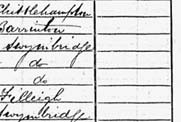 Chittlehampton
Barrinton
Swymbridge
do
do
Filleigh
Swymbridge